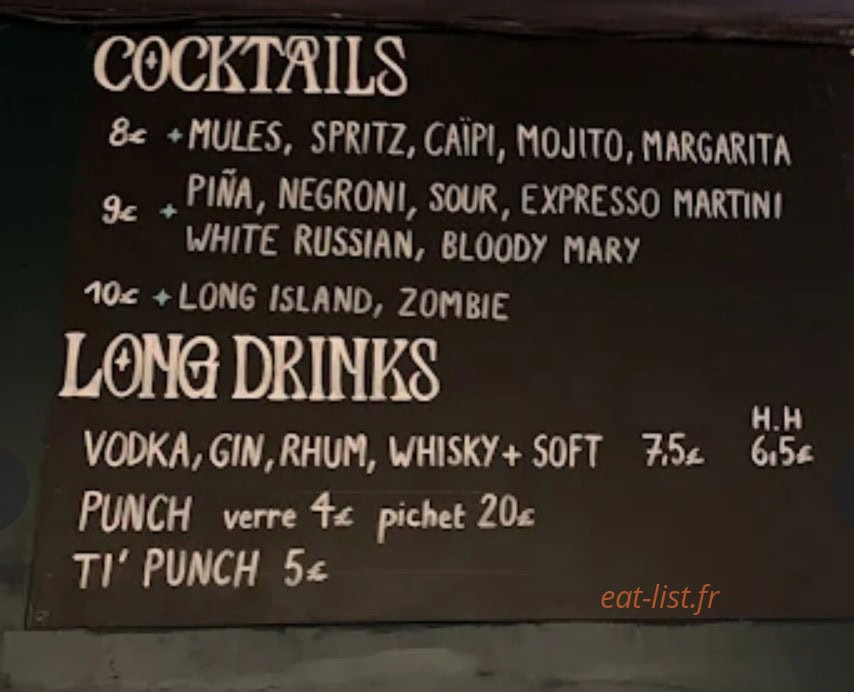 COCKTAILS
8€ + MULES, SPRITZ, CAÏPI, MOJITO, MARGARITA
9€ + PIÑA, NEGRONI, SOUR, EXPRESSO MARTINI
WHITE RUSSIAN, BLOODY MARY
10€ + LONG ISLAND, ZOMBIE
LONG DRINKS
H.H
VODKA, GIN, RHUM, WHISKY + SOFT 7,5€ 6,5€
PUNCH verre 4€ pichet 20€
TI' PUNCH 5€
eat-list.fr